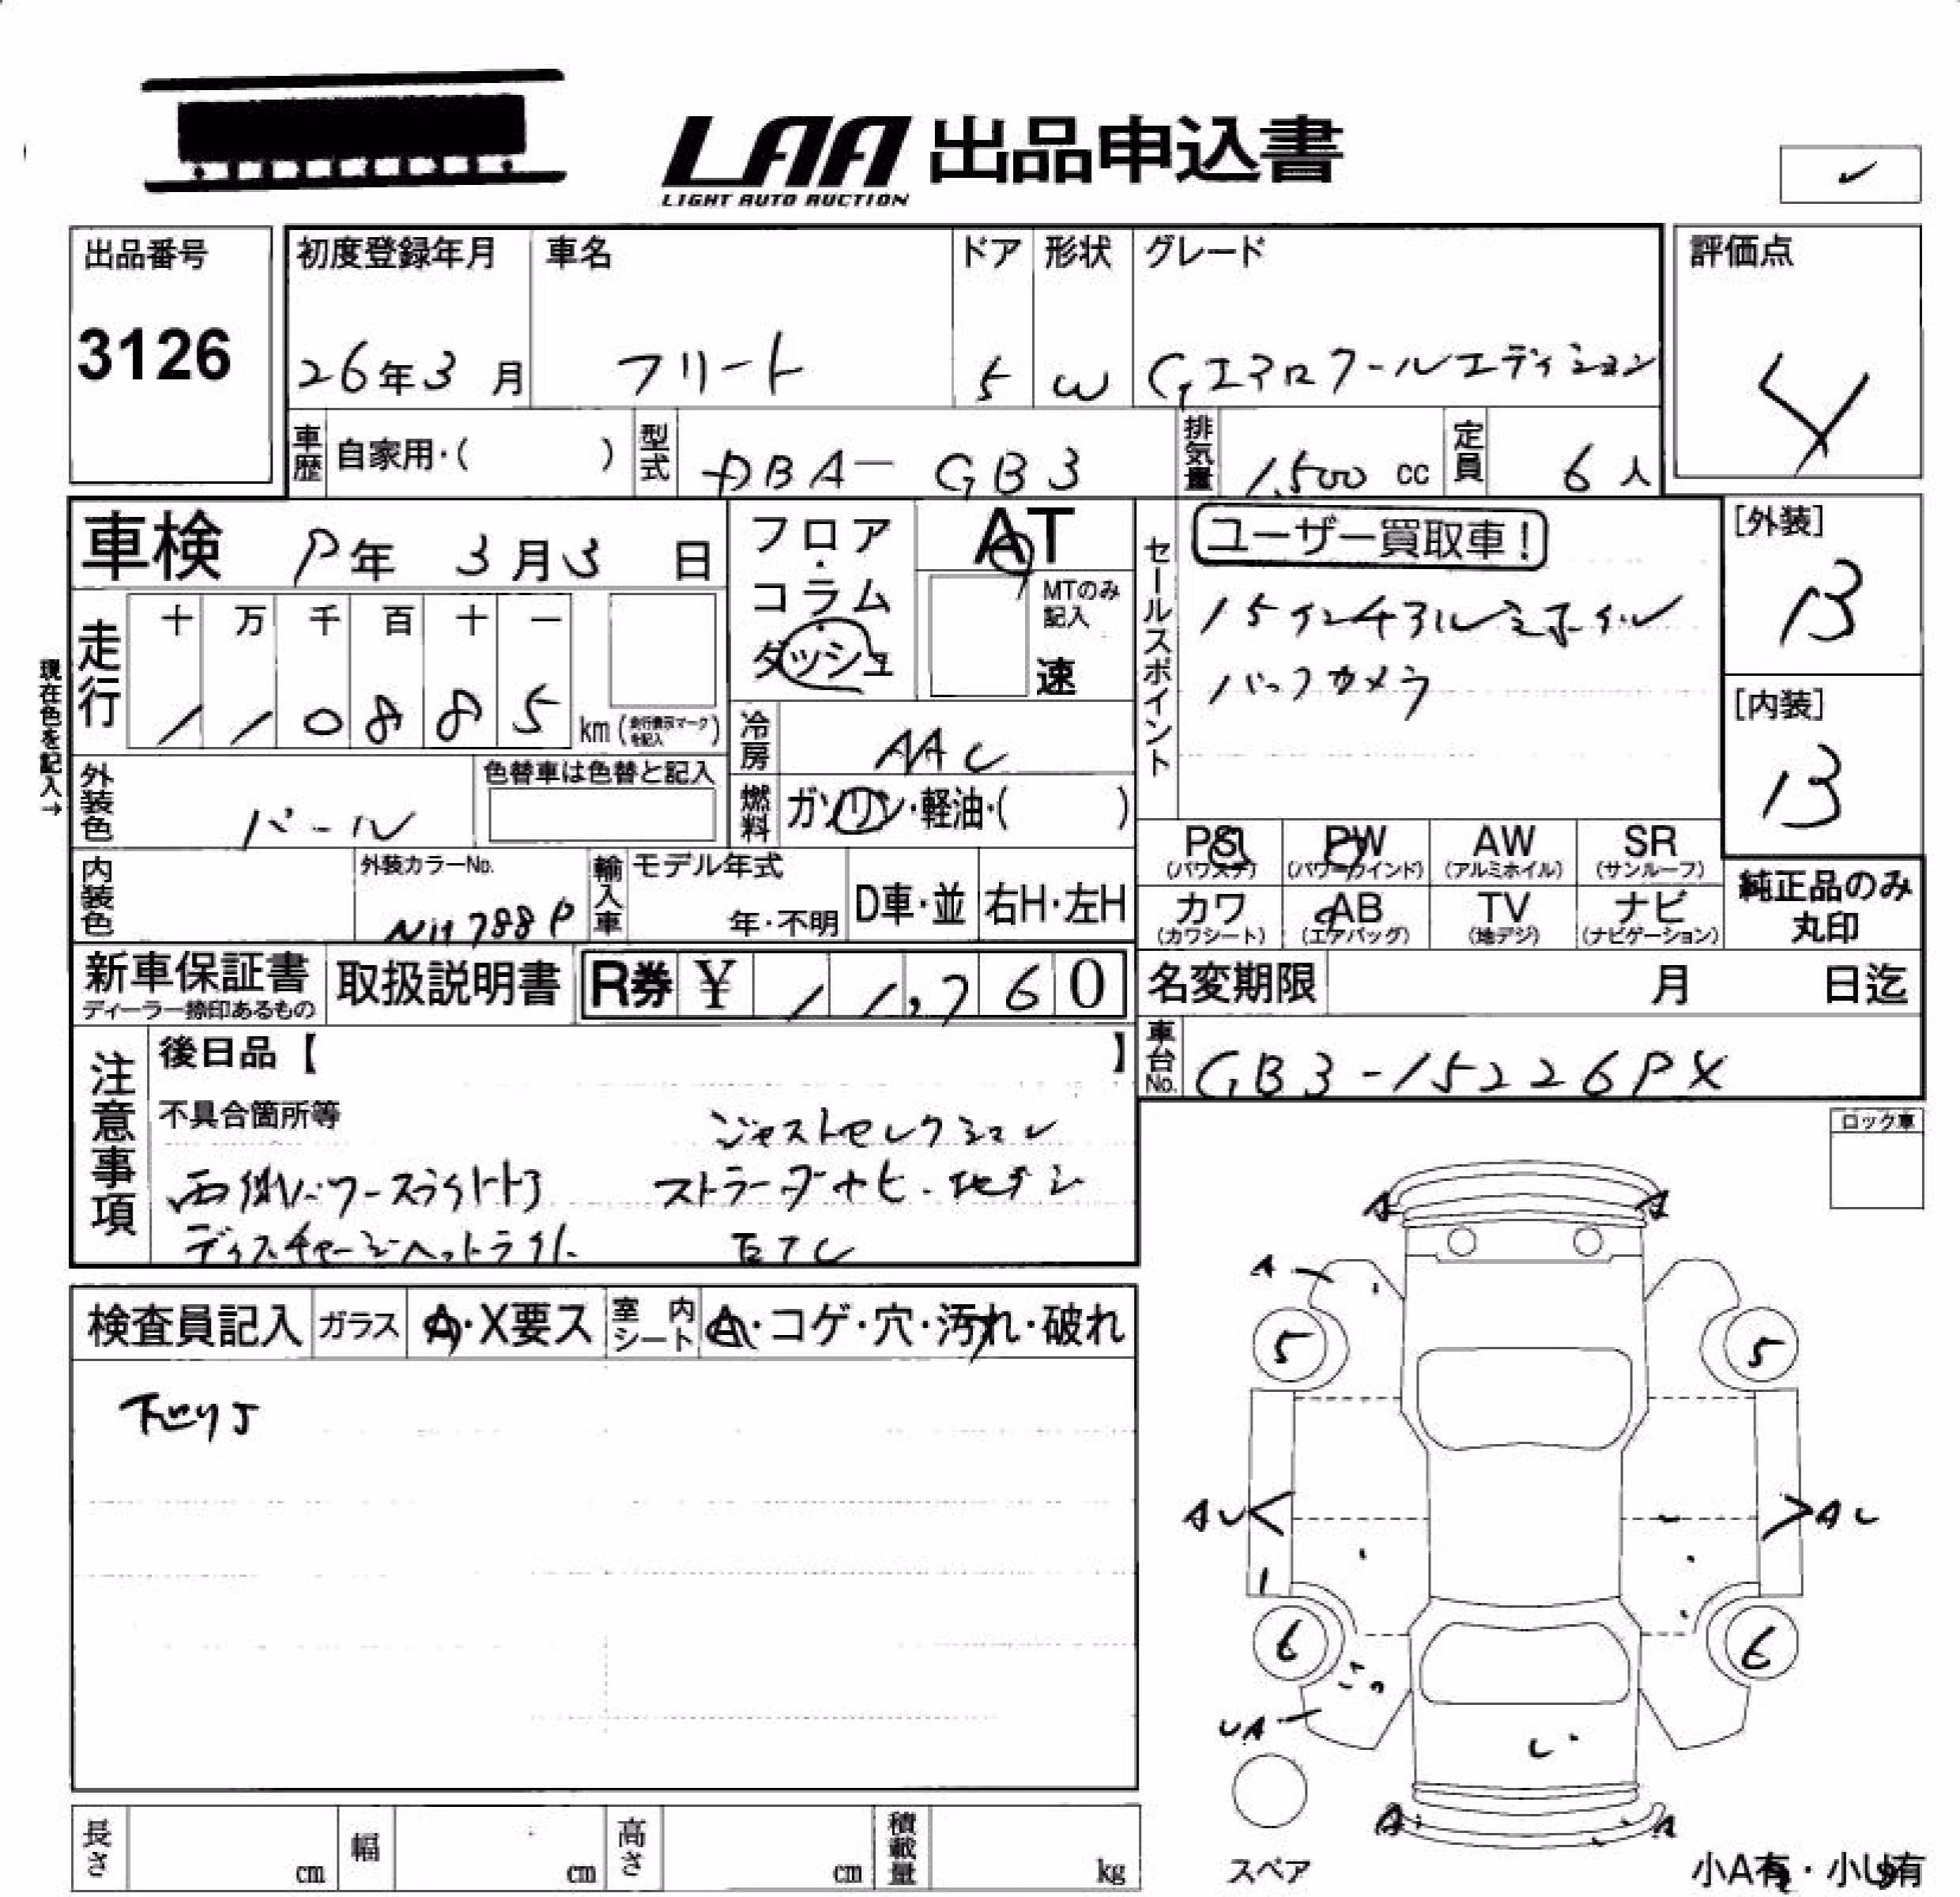 LAA 出品申込書
LIGHT AUTO AUCTION
出品番号
3126
初度登録年月
26年3月
車名
フリード
ドア
5
形状
W
グレード
Gエアロクールエディション
評価点
4
車歴 自家用・( )
型式 DBA-GB3
排気量 1,500 cc
定員 6人
車検 9年 3月3日
フロア・コラム・ダッシュ
AT
MTのみ記入
速
セールスポイント
ユーザー買取車!
15インチアルミホイル
バックカメラ
[外装]
B
[内装]
B
現在色を記入→
走行 十 万 千 百 十 一
1 1 0 8 8 5 km (走行表示マークを記入)
冷房 AAC
外装色 パール
色替車は色替と記入
燃料 ガソリン・軽油・( )
PS (パワステ)
PW (パワーウインド)
AW (アルミホイル)
SR (サンルーフ)
カワ (カワシート)
AB (エアバッグ)
TV (地デジ)
ナビ (ナビゲーション)
純正品のみ丸印
内装色
外装カラーNo.
NH788P
輸入車 モデル年式
年・不明
D車・並
右H・左H
新車保証書
ディーラー捺印あるもの
取扱説明書
R券 ¥ 11,760
名変期限 月 日迄
車台No. GB3-15226PX
注意事項
後日品【 】
不具合箇所等
ジャストセレクション
両側パワースライドドア
ストラーダナビ・地デジ
ディスチャージヘッドライト
ETC
ロック車
検査員記入
ガラス A・X要ス
室内シート A・コゲ・穴・汚れ・破れ
下回りS
A A
A
5 5
AU AU
6 6
UA
A A
スペア
小A有・小U有
長さ cm
幅 cm
高さ cm
積載量 kg